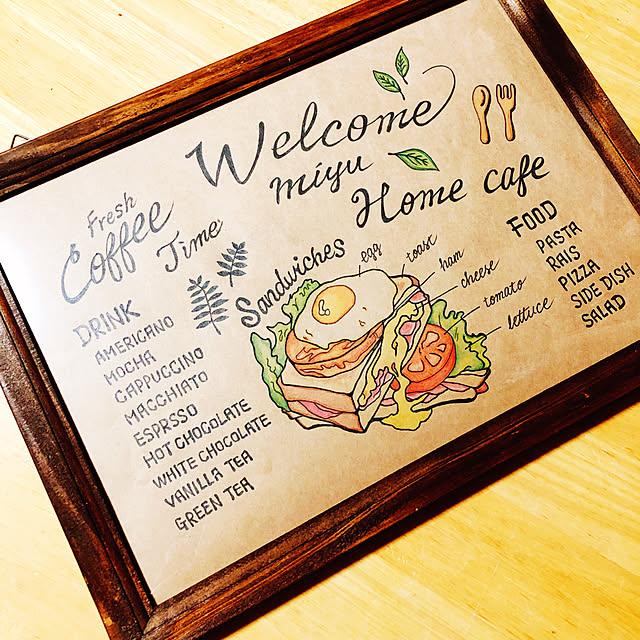 Welcome
miyu
Home cafe
Fresh
Coffee
Time
DRINK
AMERICANO
MOCHA
CAPPUCCINO
MACCHIATO
ESPRSSO
HOT CHOCOLATE
WHITE CHOCOLATE
VANILLA TEA
GREEN TEA
Sandwiches
egg
toast
ham
cheese
tomato
lettuce
FOOD
PASTA
RAIS
PIZZA
SIDE DISH
SALAD